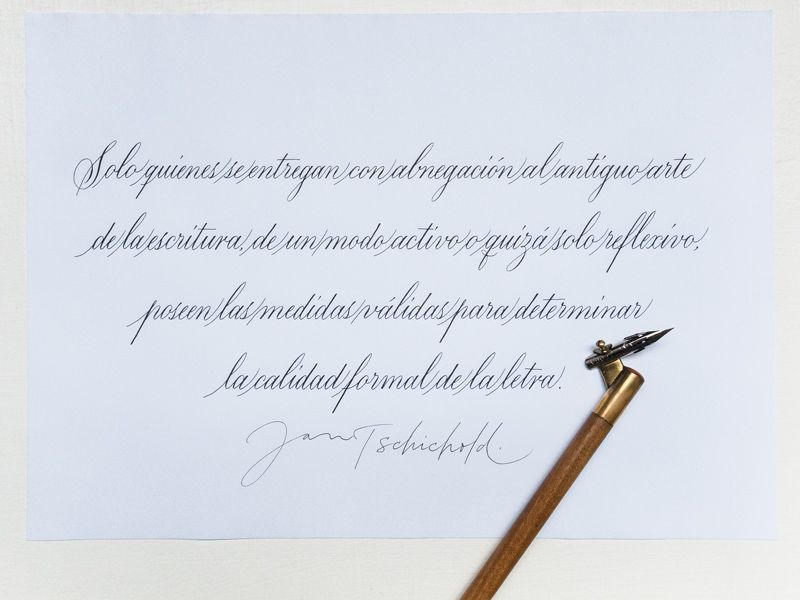 Solo quienes se entregan con abnegación al antiguo arte
de la escritura, de un modo activo o quizá solo reflexivo,
poseen las medidas válidas para determinar
la calidad formal de la letra.
Jan Tschichold.